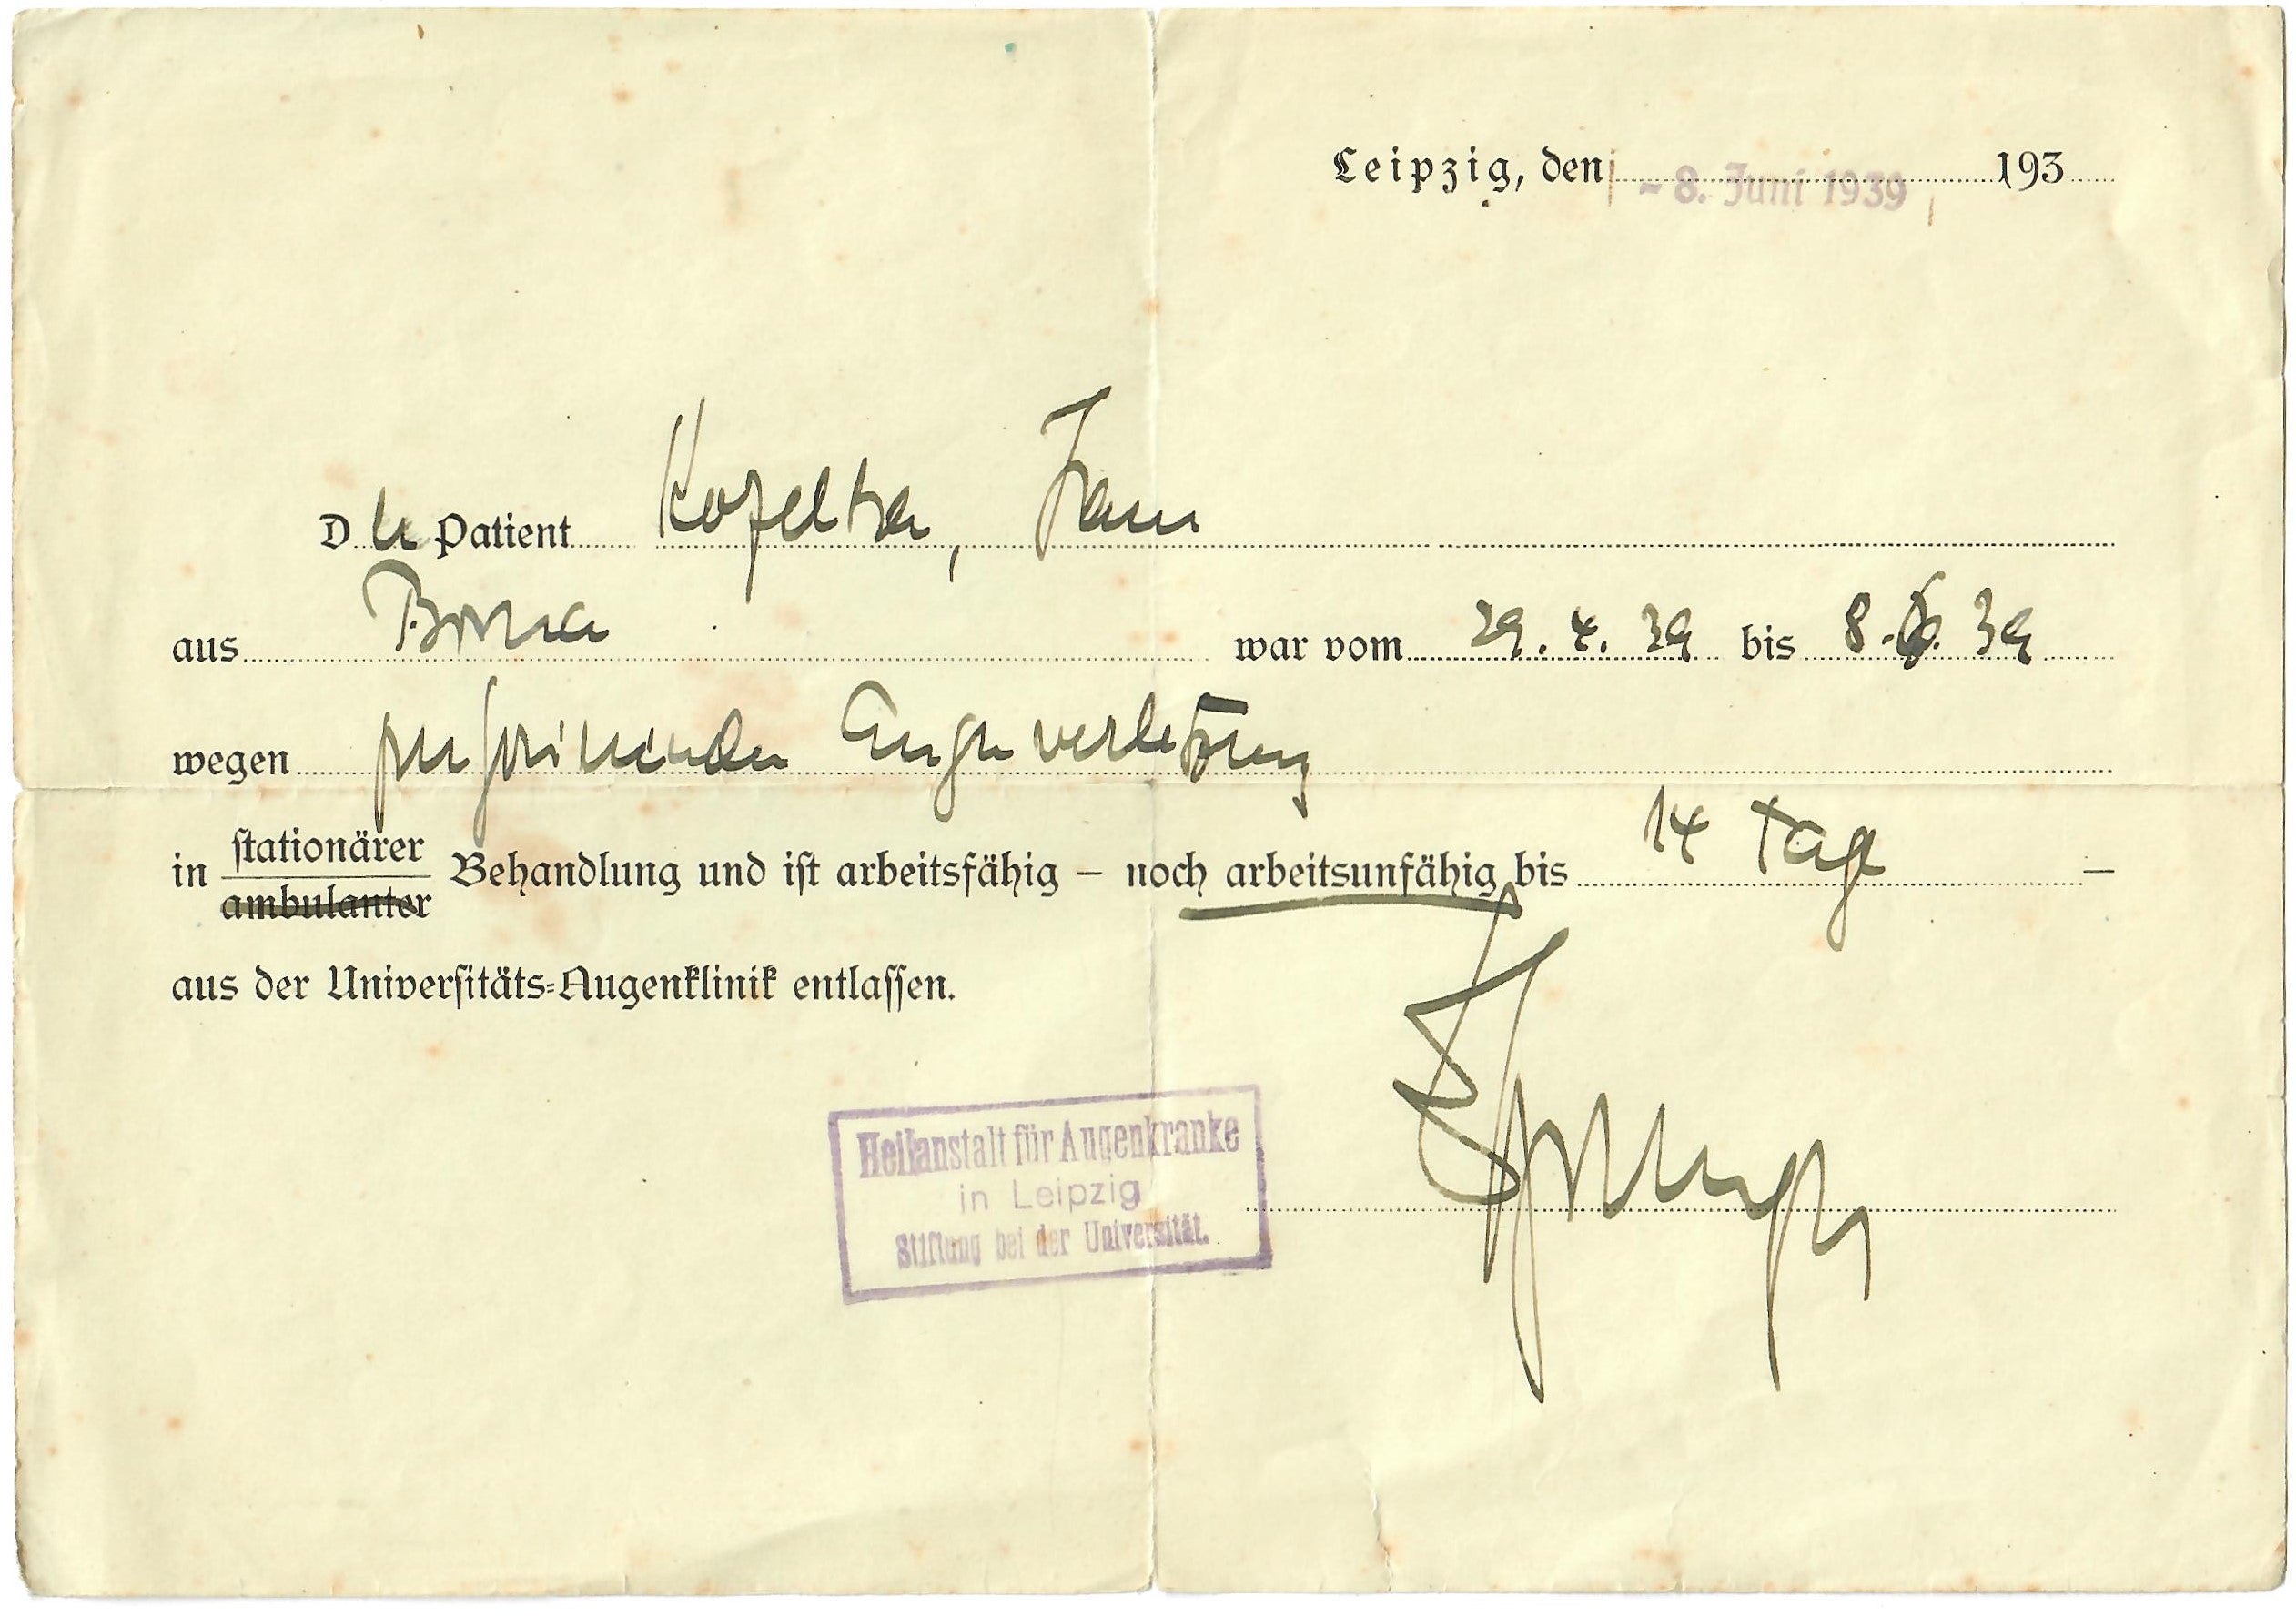 Leipzig, den - 8. Juni 1939 193
Der Patient Kozelka, Jann
aus Borna war vom 29. 4. 39 bis 8. 6. 39
wegen perforierender Augenverletzung
in stationärer Behandlung und ist arbeitsfähig – noch arbeitsunfähig bis 14 Tage –
ambulanter
aus der Universitäts-Augenklinik entlassen.
Heilanstalt für Augenkranke
in Leipzig
Stiftung bei der Universität.